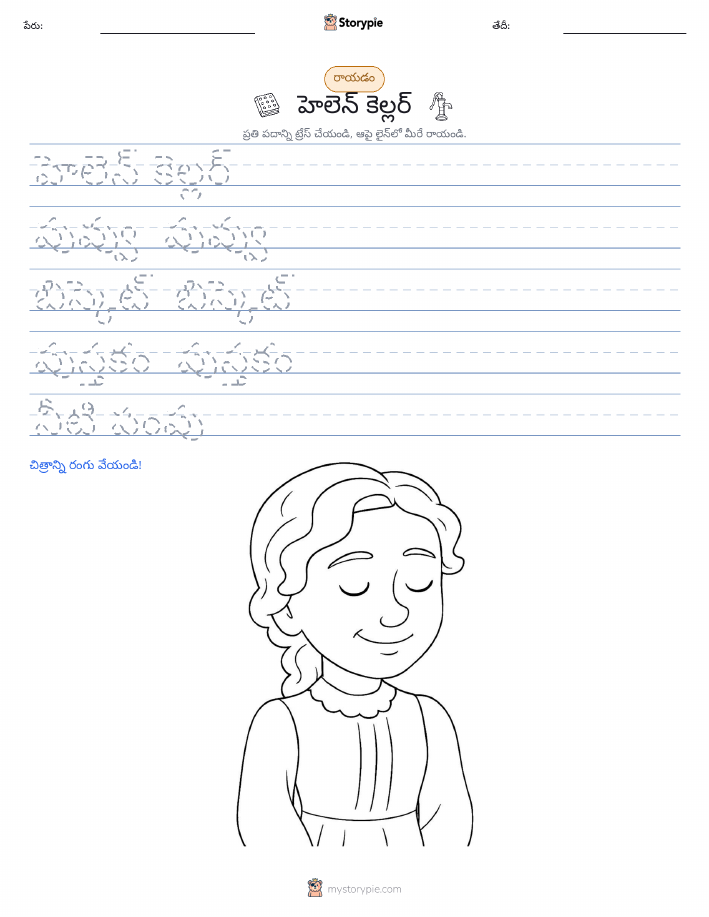 పేరు:
Storypie
తేదీ:
రాయడం
హెలెన్ కెల్లర్
ప్రతి పదాన్ని ట్రేస్ చేయండి, ఆపై లైన్‌లో మీరే రాయండి.
హెలెన్ కెల్లర్
పువ్వు పువ్వు
బిస్కెట్ బిస్కెట్
పుస్తకం పుస్తకం
నీటి పంపు
చిత్రాన్ని రంగు వేయండి!
mystorypie.com